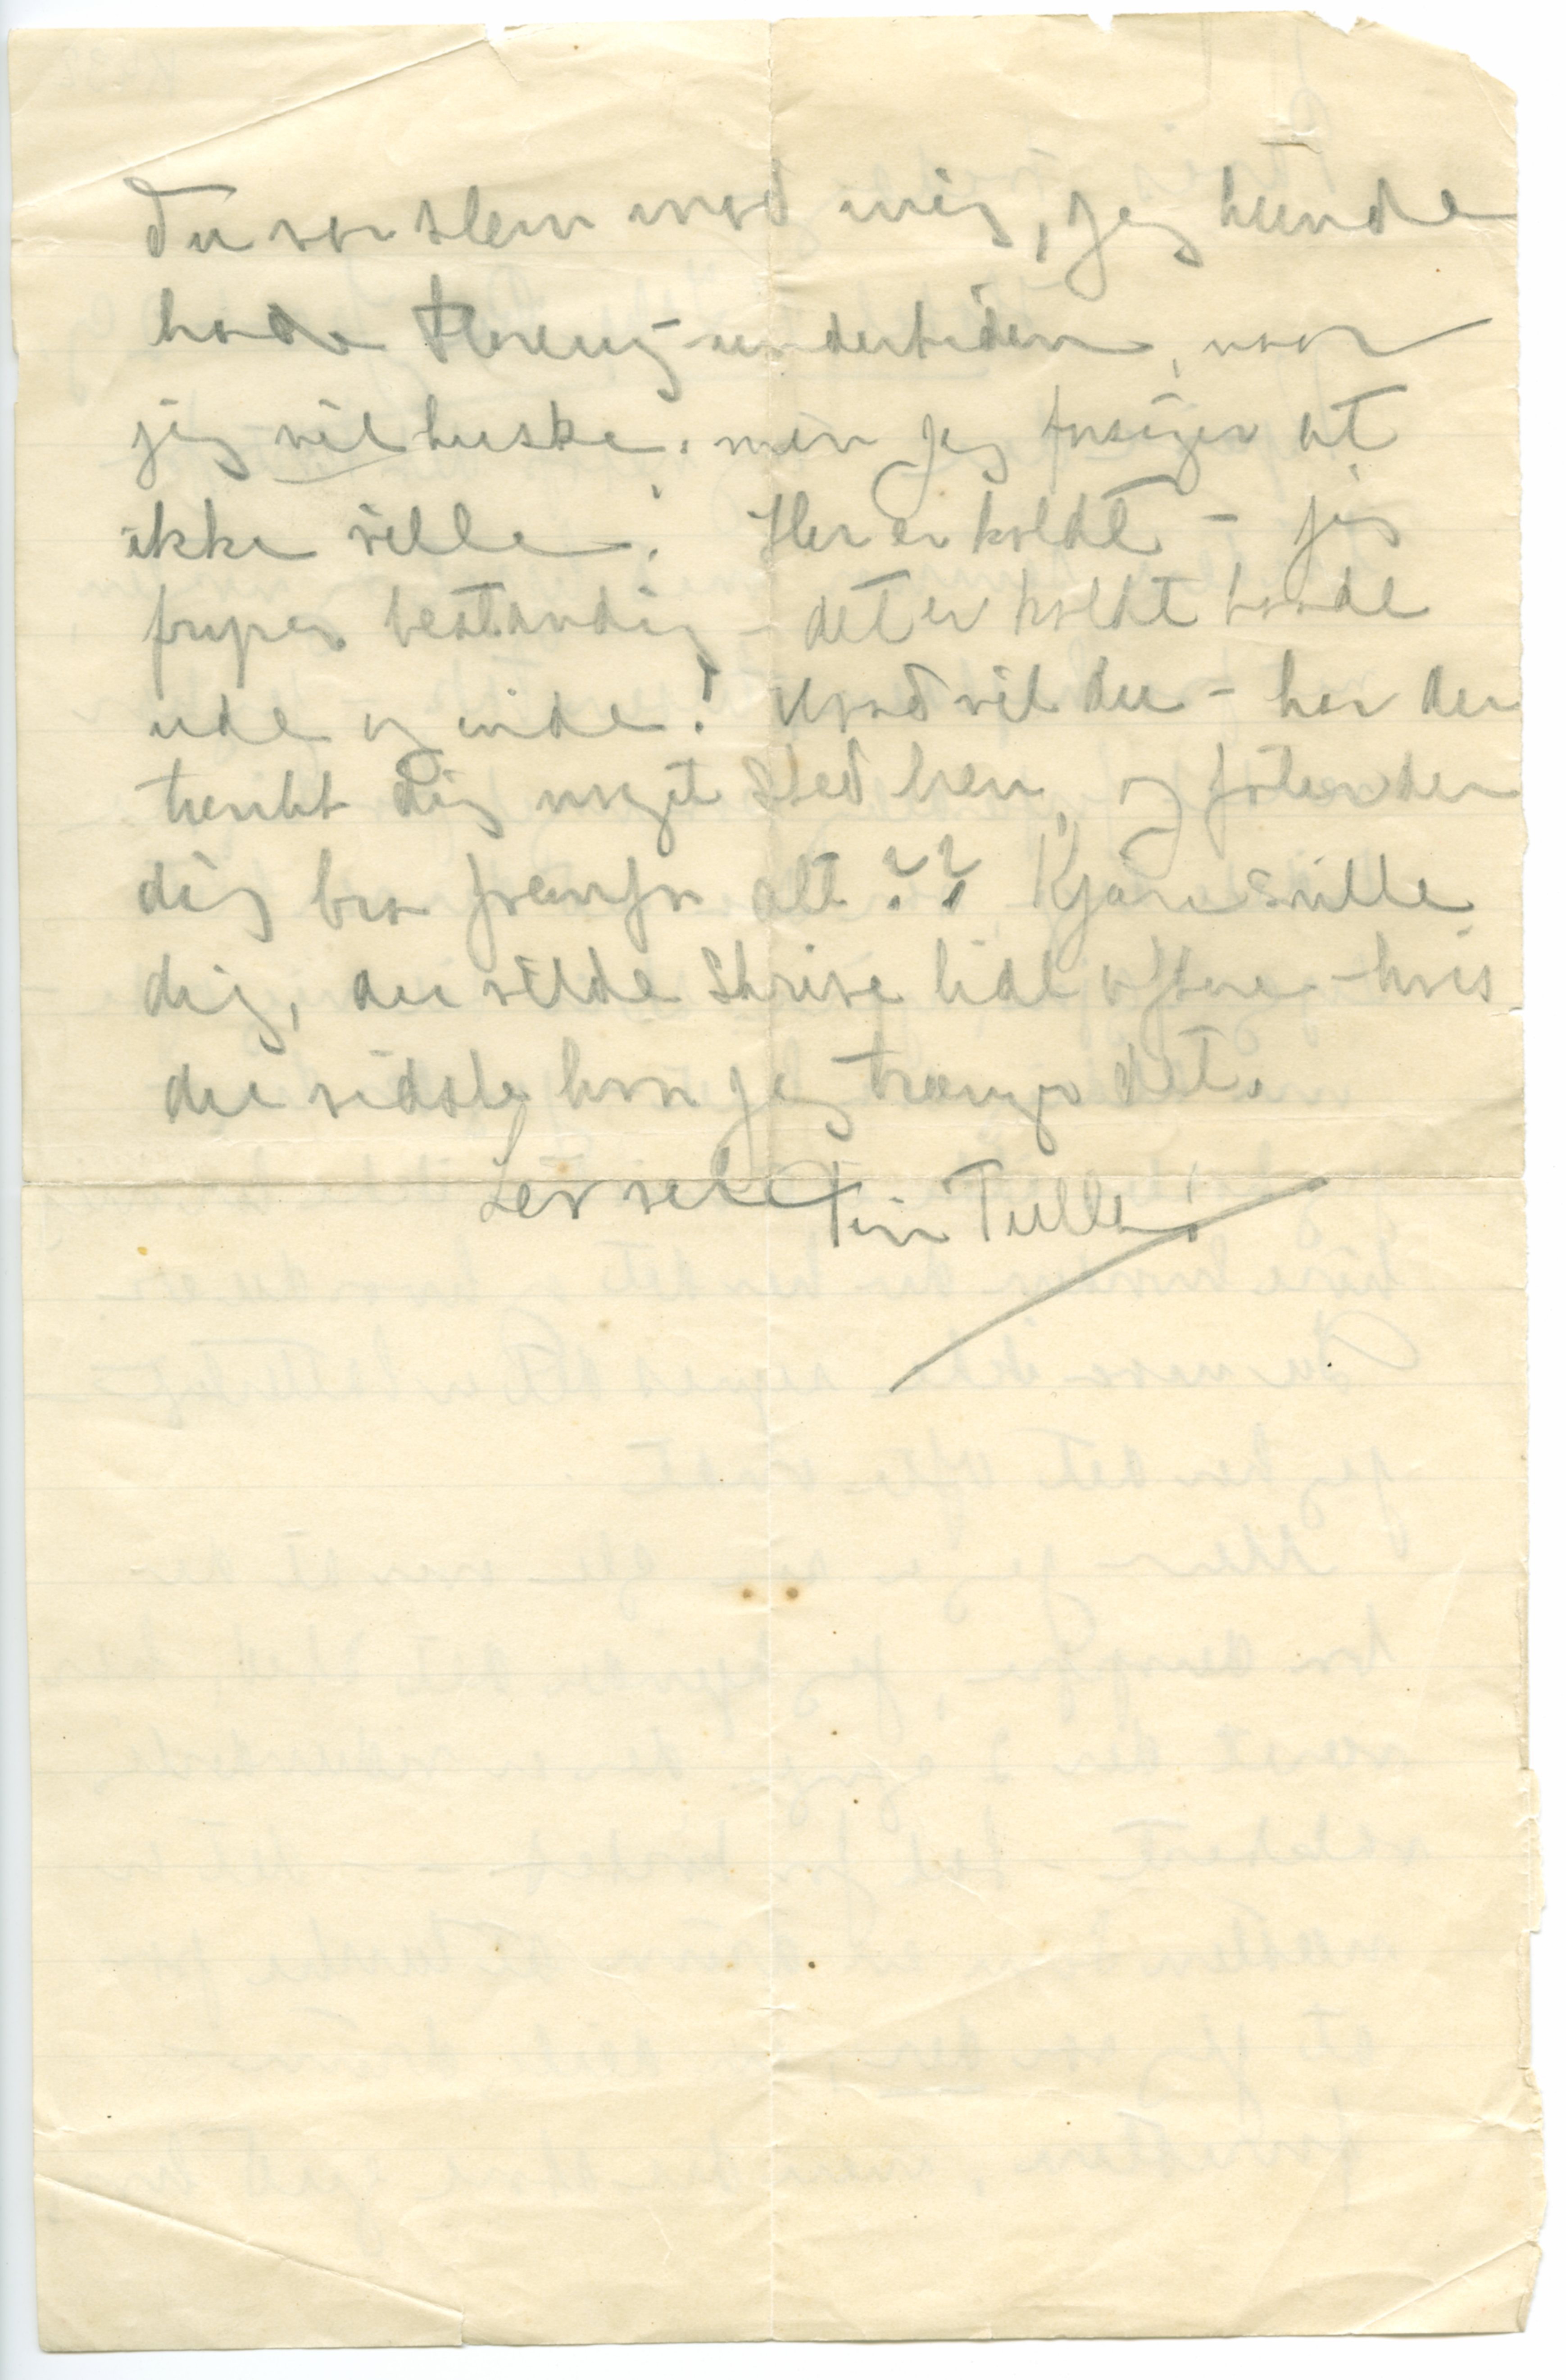 du var slem mod mig, jeg kunde
hade Henring undertiden, naar
jeg vil huske. men jeg forsøger at
ikke ville. Her er koldt - jeg
fryser bestandig - det er koldt baade
ude og inde! Hvad vil du - har du
tænkt dig noget Sted hen, og føler du
dig bra fremfor alt?? Kjære snille
dig, du vilde skrive lidt oftere - hvis
du vidste hvor jeg trænger det.
Lev vel Din Tulla!